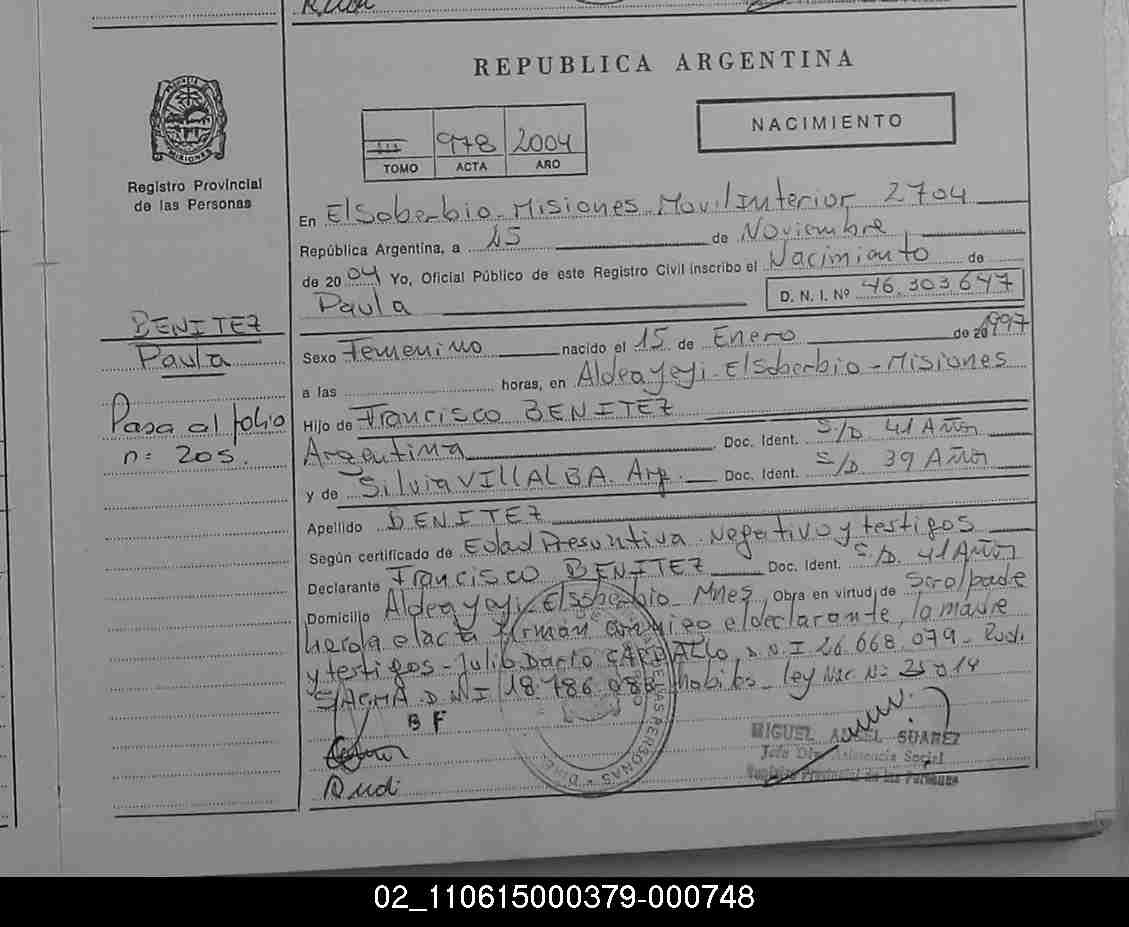 Rudi
REPUBLICA ARGENTINA
PROVINCIA DE
MISIONES
Registro Provincial
de las Personas
III 978 2004
TOMO ACTA AÑO
NACIMIENTO
En El Soberbio - Misiones Movil Interior 2704
República Argentina, a 15 de Noviembre
de 2004 Yo, Oficial Público de este Registro Civil inscribo el Nacimianto de
Paula D. N. I. Nº 46.303.647
BENITEZ
Paula
Sexo Femenino nacido el 15 de Enero de 20 1997
a las horas, en Aldea yeyi - El Soberbio - Misiones
Pasa al folio
n= 205.
Hijo de Francisco BENITEZ
Argentina Doc. Ident. S/D 41 Años
y de Silvia VILLALBA. Arg. Doc. Ident. S/D 39 Años
Apellido BENITEZ
Según certificado de Edad Presuntiva Negativo y testigos
Declarante Francisco BENITEZ Doc. Ident. S/D. 41 Años
Domicilio Aldea yeyi - El Soberbio - Mnes Obra en virtud de Ser el padre
el acta firman conmigo el declarante, la madre
y testigos - Julio Dario D.N.I 26.668.079 - Rudi
D.N.I 18.786.083 habiles - ley Nac Nº 25014
B F
Rudi
DE LAS PERSONAS
MIGUEL ANGEL SUAREZ
Jefe Asistencia Social
Registro Provincial de las Personas
02_110615000379-000748